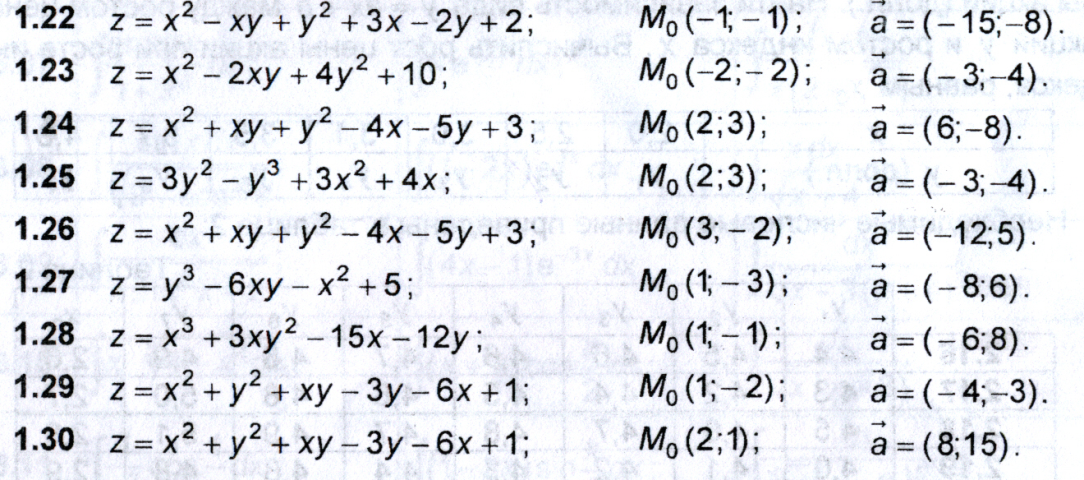 1.22 z = x² − xy + y² + 3x − 2y + 2; M₀(−1; −1); a⃗ = (−15; −8).
1.23 z = x² − 2xy + 4y² + 10; M₀(−2; −2); a⃗ = (−3; −4).
1.24 z = x² + xy + y² − 4x − 5y + 3; M₀(2; 3); a⃗ = (6; −8).
1.25 z = 3y² − y³ + 3x² + 4x; M₀(2; 3); a⃗ = (−3; −4).
1.26 z = x² + xy + y² − 4x − 5y + 3; M₀(3; −2); a⃗ = (−12; 5).
1.27 z = y³ − 6xy − x² + 5; M₀(1; −3); a⃗ = (−8; 6).
1.28 z = x³ + 3xy² − 15x − 12y; M₀(1; −1); a⃗ = (−6; 8).
1.29 z = x² + y² + xy − 3y − 6x + 1; M₀(1; −2); a⃗ = (−4; −3).
1.30 z = x² + y² + xy − 3y − 6x + 1; M₀(2; 1); a⃗ = (8; 15).